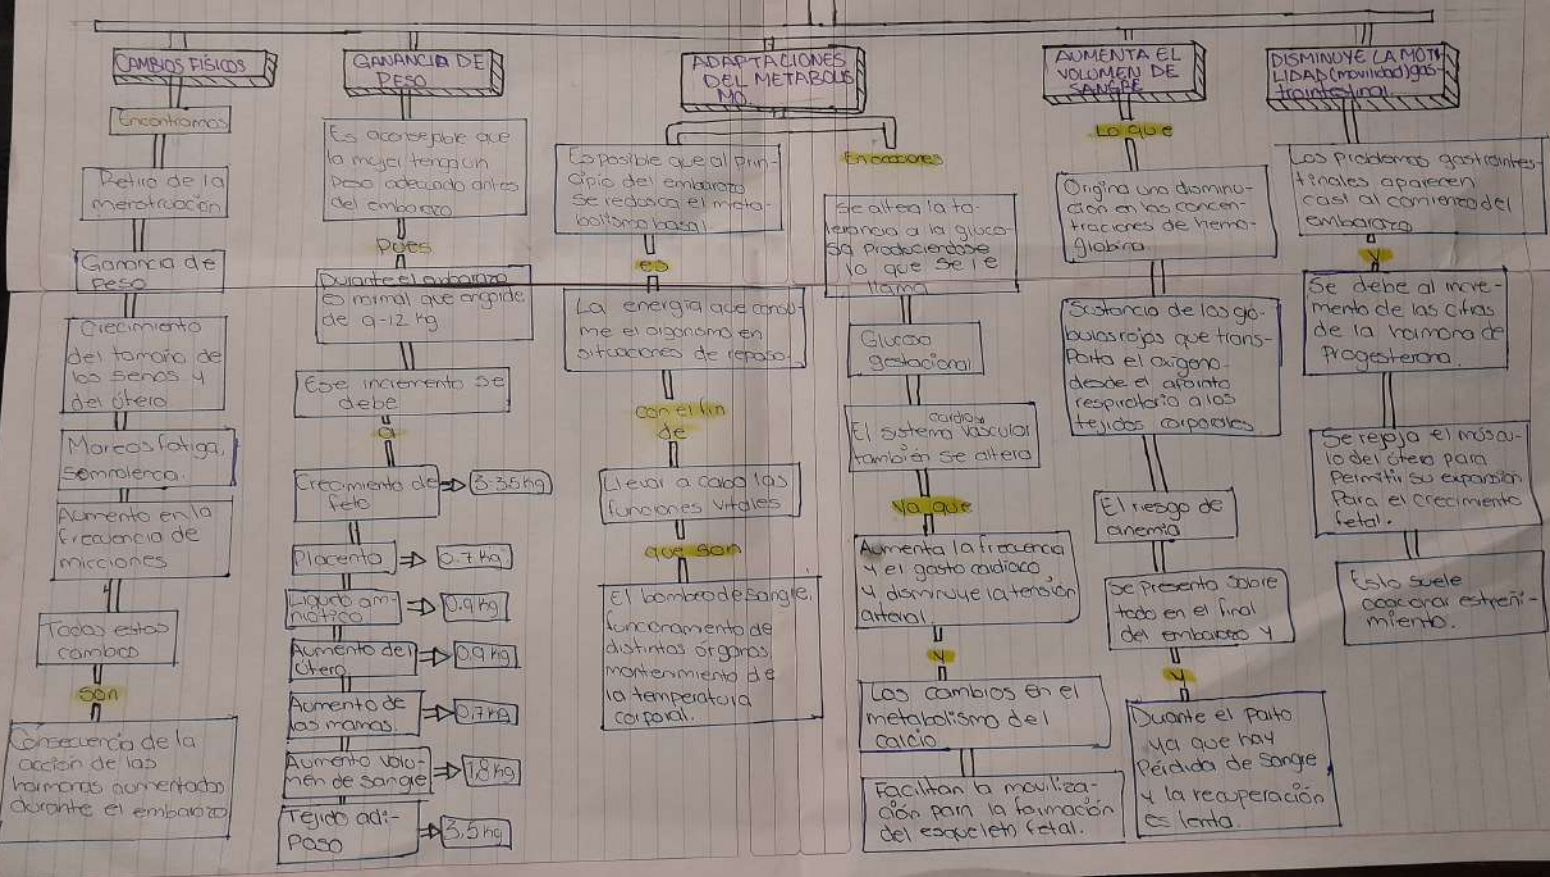 CAMBIOS FÍSICOS
Encontramos
Retiro de la
menstruación
Ganancia de
peso
Crecimiento
del tamaño de
los senos y
del útero
Mareos fatiga,
somnolencia.
Aumento en la
frecuencia de
micciones
Todos estos
cambios
son
Consecuencia de la
acción de las
hormonas aumentadas
durante el embarazo
GANANCIA DE
PESO
Es aconsejable que
la mujer tenga un
peso adecuado antes
del embarazo
pues
Durante el embarazo
es normal que engorde
de 9-12 kg
Ese incremento se
debe
a
Crecimiento de
feto
3-3.5 kg
Placenta
0.7 kg
Liquido am-
niótico
0.9 kg
Aumento del
útero
0.9 kg
Aumento de
las mamas
0.7 kg
Aumento volu-
men de sangre
1.8 kg
Tejido adi-
poso
3.5 kg
ADAPTACIONES
DEL METABOLIS
MO.
Es posible que al prin-
cipio del embarazo
se reduzca el meta-
bolismo basal
es
La energía que consu-
me el organismo en
situaciones de reposo
con el fin
de
Llevar a cabo las
funciones vitales
que son
El bombeo de sangre,
funcionamiento de
distintos órganos
mantenimiento de
la temperatura
corporal.
En ocasiones
Se altera la to-
lerancia a la gluco-
sa produciendose
lo que se le
llama
Glucosa
gestacional
El sistema cardiovascular
también se altera
Ya que
Aumenta la frecuencia
y el gasto cardiaco
y disminuye la tensión
arterial.
y
Los cambios en el
metabolismo del
calcio
Facilitan la moviliza-
ción para la formación
del esqueleto fetal.
AUMENTA EL
VOLUMEN DE
SANGRE
Lo que
Origina una disminu-
ción en las concen-
traciones de hemo-
globina
Sustancia de los gló-
bulos rojos que trans-
porta el oxigeno
desde el aparato
respiratorio a los
tejidos corporales
El riesgo de
anemia
Se presenta sobre
todo en el final
del embarazo y
y
Duante el parto
ya que hay
pérdida de sangre
y la recuperación
es lenta.
DISMINUYE LA MOTI
LIDAD (movilidad) gas-
trointestinal
Los problemas gastrointes-
tinales aparecen
casi al comienzo del
embarazo
y
Se debe al incre-
mento de las cifras
de la hormona de
Progesterona.
Se relaja el múscu-
lo del útero para
permitir su expansión
para el crecimiento
fetal.
Esto suele
ocacionar estreñi-
miento.